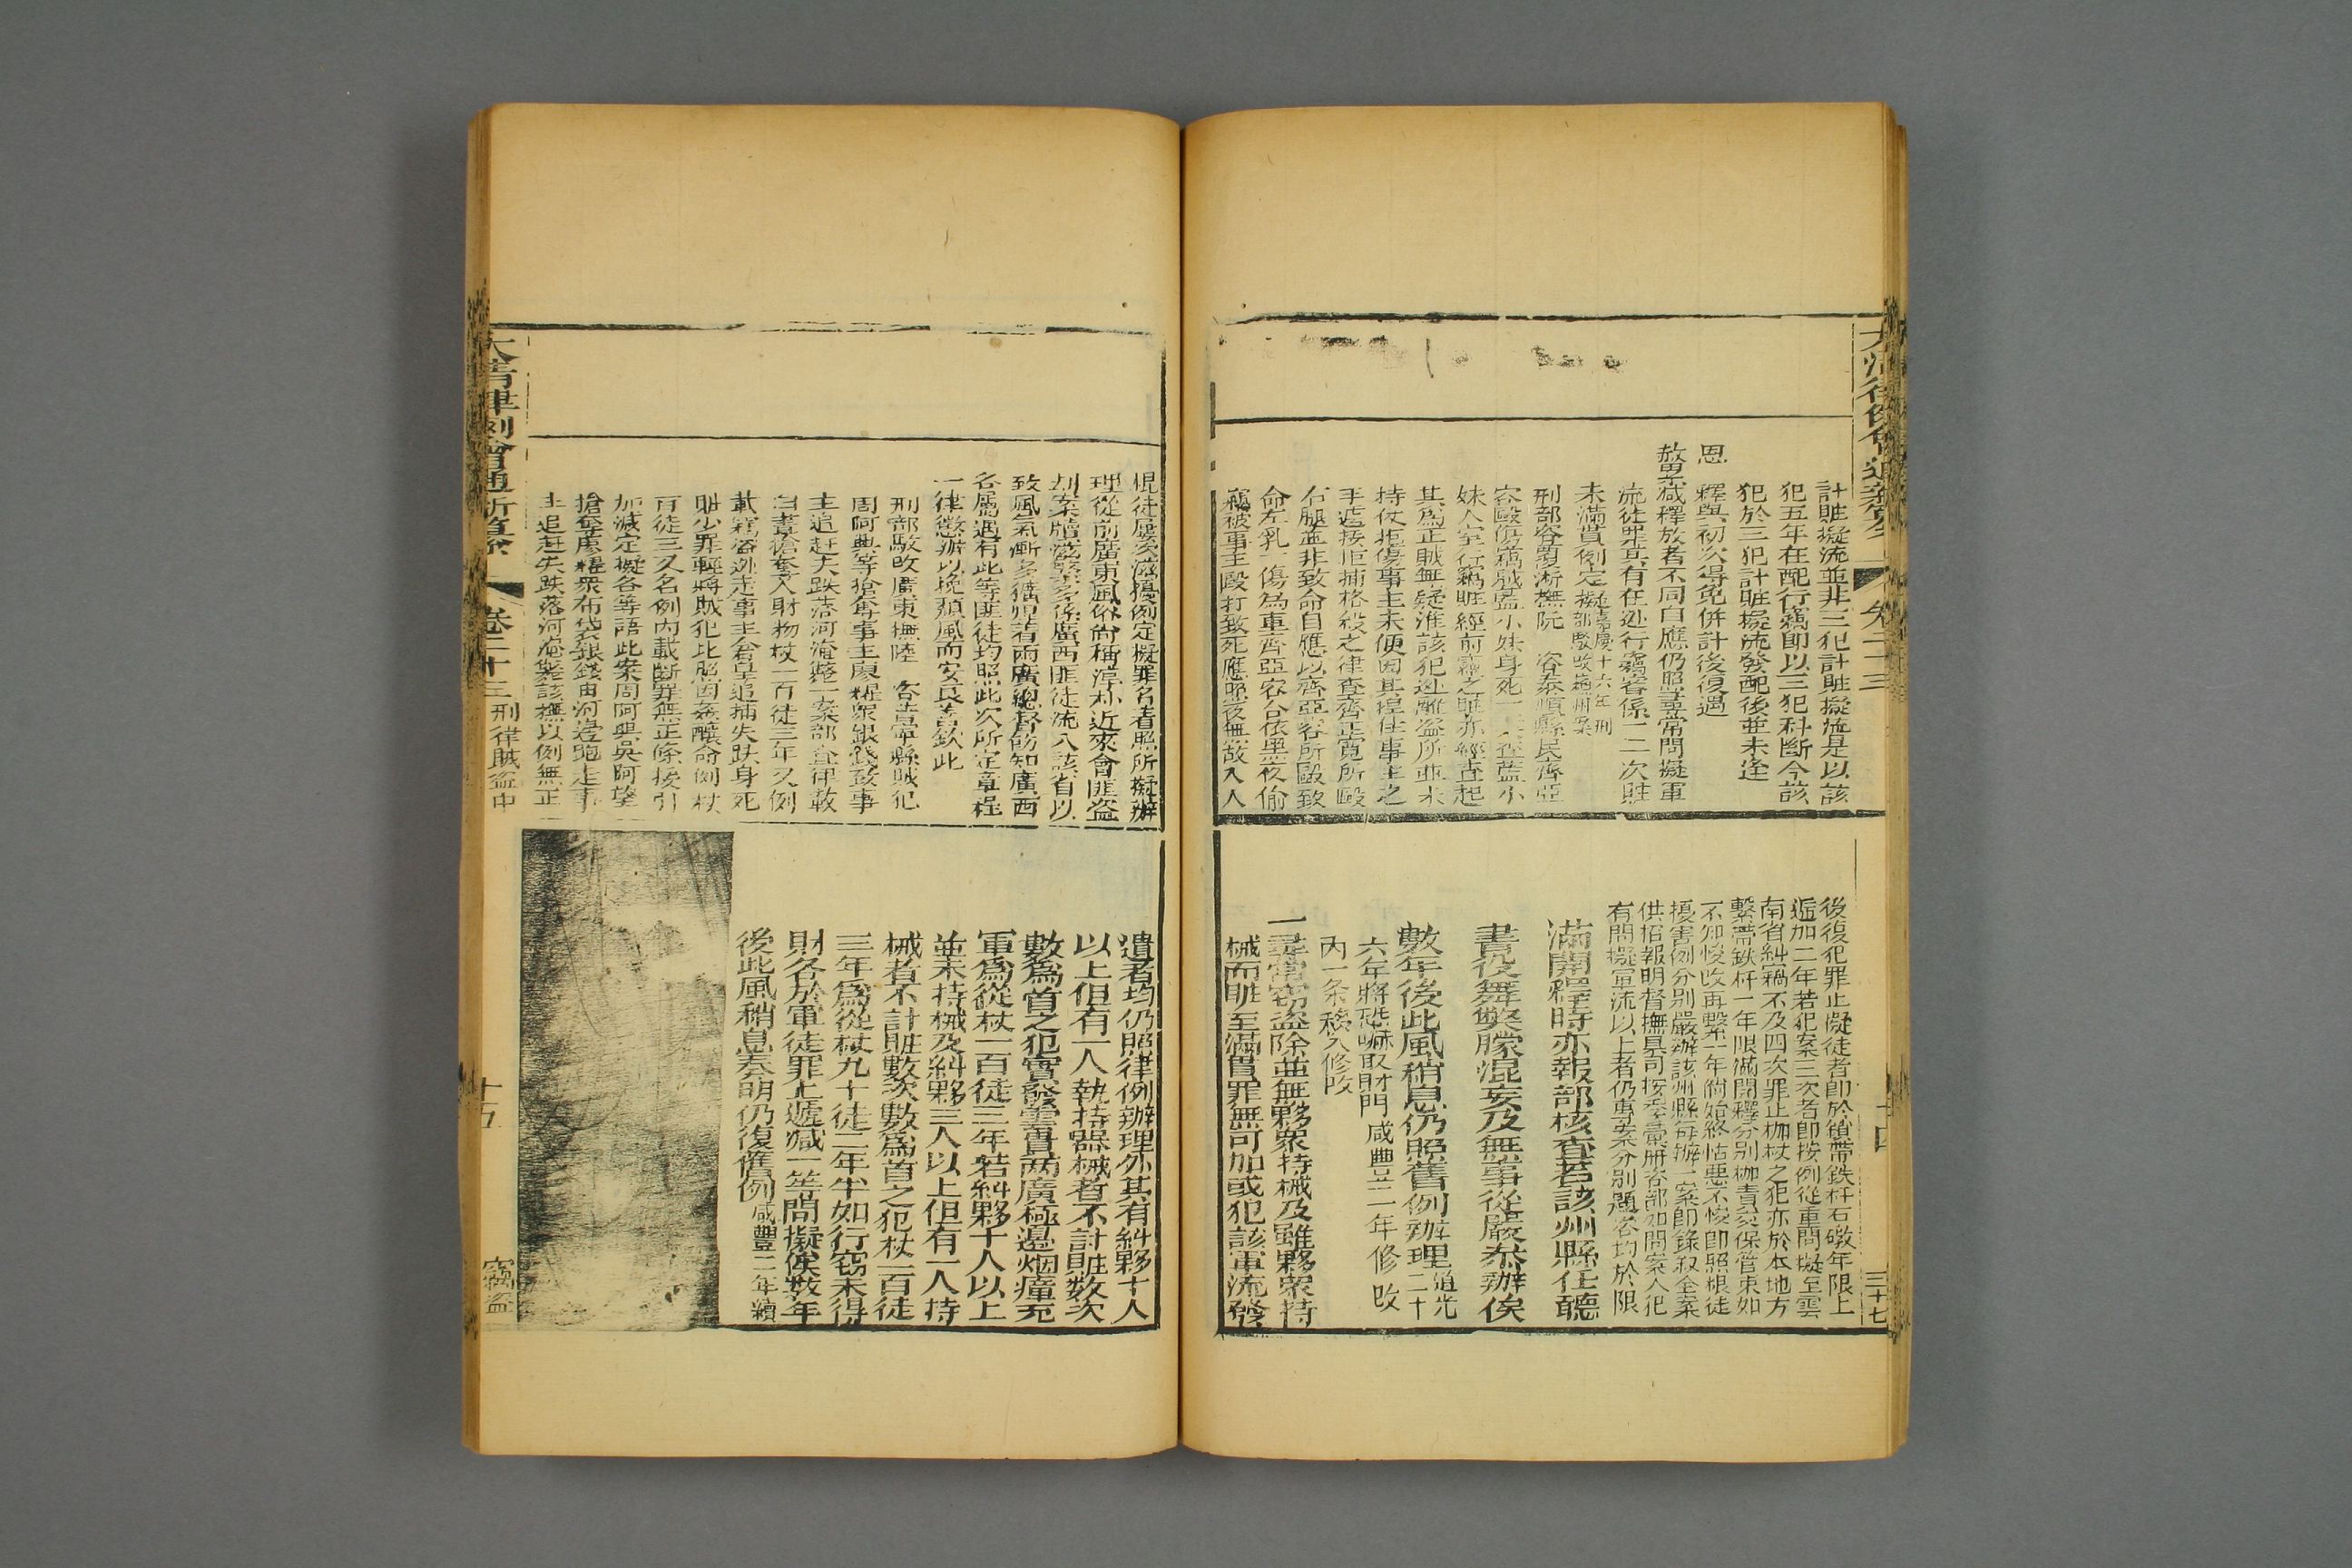 大清律例會通新纂
卷二十三
十四
三十七
計賍擬流並非三犯計賍擬流是以該
犯五年在配行竊即以三犯科斷今該
犯於三犯計賍擬流發配後並未逢
恩
釋與初次得免併計後復遇
赦累減釋放者不同自應仍照尋常問擬軍
流徒罪其有在処行竊審係一二次賍
未滿貫例定擬嘉慶十六年刑
部駁改
刑部咨覆浙撫阮 咨泰順縣民齊亞
容毆傷竊賊藍小妹身死一案查藍小
妹入室行竊賍經前獲之賍亦經查起
其為正賊無疑淮該犯逃離盗所並未
持仗拒傷事主未便因其推住事主之
手遽按拒捕格殺之律查齊正寬所毆
右腿並非致命自應以齊亞容所毆致
命左乳一傷為重齊亞容合依黑夜偷
竊被事主毆打致死應照夜無故入人
後復犯罪止擬徒者即於鎖帶鉄杆石礅年限上
遞加二年若犯案三次者即按例從重問擬至雲
南省糾竊不及四次罪止枷杖之犯亦於本地方
繫帶鉄杆一年限滿開釋分別枷責交保管束如
不知悛改再繫一年倘始終怙惡不悛即照棍徒
擾害例分別嚴辦該州縣每辦一案即錄叙全案
供招報明督撫臬司按季彙册咨部如問案人犯
有問擬軍流以上者仍專案分別題咨均於限
滿開釋時亦報部核査若該州縣任聽
書役舞獘朦混妄及無辜從嚴叅辦俟
數年後此風稍息仍照舊例辦理道光二十
六年將恐嚇取財門 咸豐二年修改
内一条移入修改
一尋常窃盜除並無夥衆持械及雖夥衆持
械而賍至滿貫罪無可加或犯該軍流發
棍徒屢次滋擾例定擬罪名者照所擬辦
理從前廣東風俗尚稱淳朴近來會匪盗
刦案牘滋繁多係廣西匪徒流入該省以
致風氣漸多獷悍着兩廣總督飭知廣西
各屬遇有此等匪徒均照此次所定章程
一律懲辦以挽頽風而安良善欽此
刑部駁改廣東撫陸 咨吉富縣賊犯
周阿典等搶奪事主廖耀衆銀袋致事
主追赶失跌落河淹斃一案部查律載
白晝搶奪人財物杖一百徒三年又例
載竊盗逃走事主倉皇追捕失跌身死
賍少罪輕將賊犯比照因姦釀命例杖
百徒三久名例內載斷罪無正條援引
加減定擬各等語此案周阿興吳阿望
搶奪廖耀衆布袋銀錢由河邉跑走事
主追赶失跌落河淹斃該撫以例無正
遣者均仍照律例辦理外其有糾夥十人
以上但有一人執持器械者不計賍数次
數爲首之犯實發雲貴两廣極邉烟瘴充
軍爲從杖一百徒三年若糾夥十人以上
並未持械及糾夥三人以上但有一人持
械者不計賍數次數爲首之犯杖一百徒
三年爲從杖九十徒二年半如行窃未得
財各於軍徒罪上遞减一等問擬俟数年
後此風稍息奏明仍復舊例咸豐二年續
大清律例會通新纂
卷二十三
刑律賊盜中
十五
竊盜